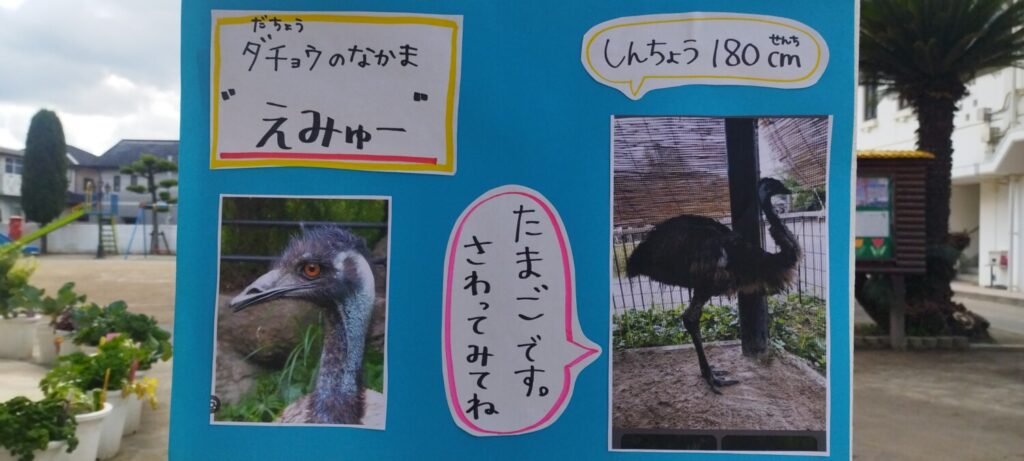 だちょう
ダチョウのなかま
"えみゅー"
しんちょう 180cm
せんち
たまごです。
さわってみてね